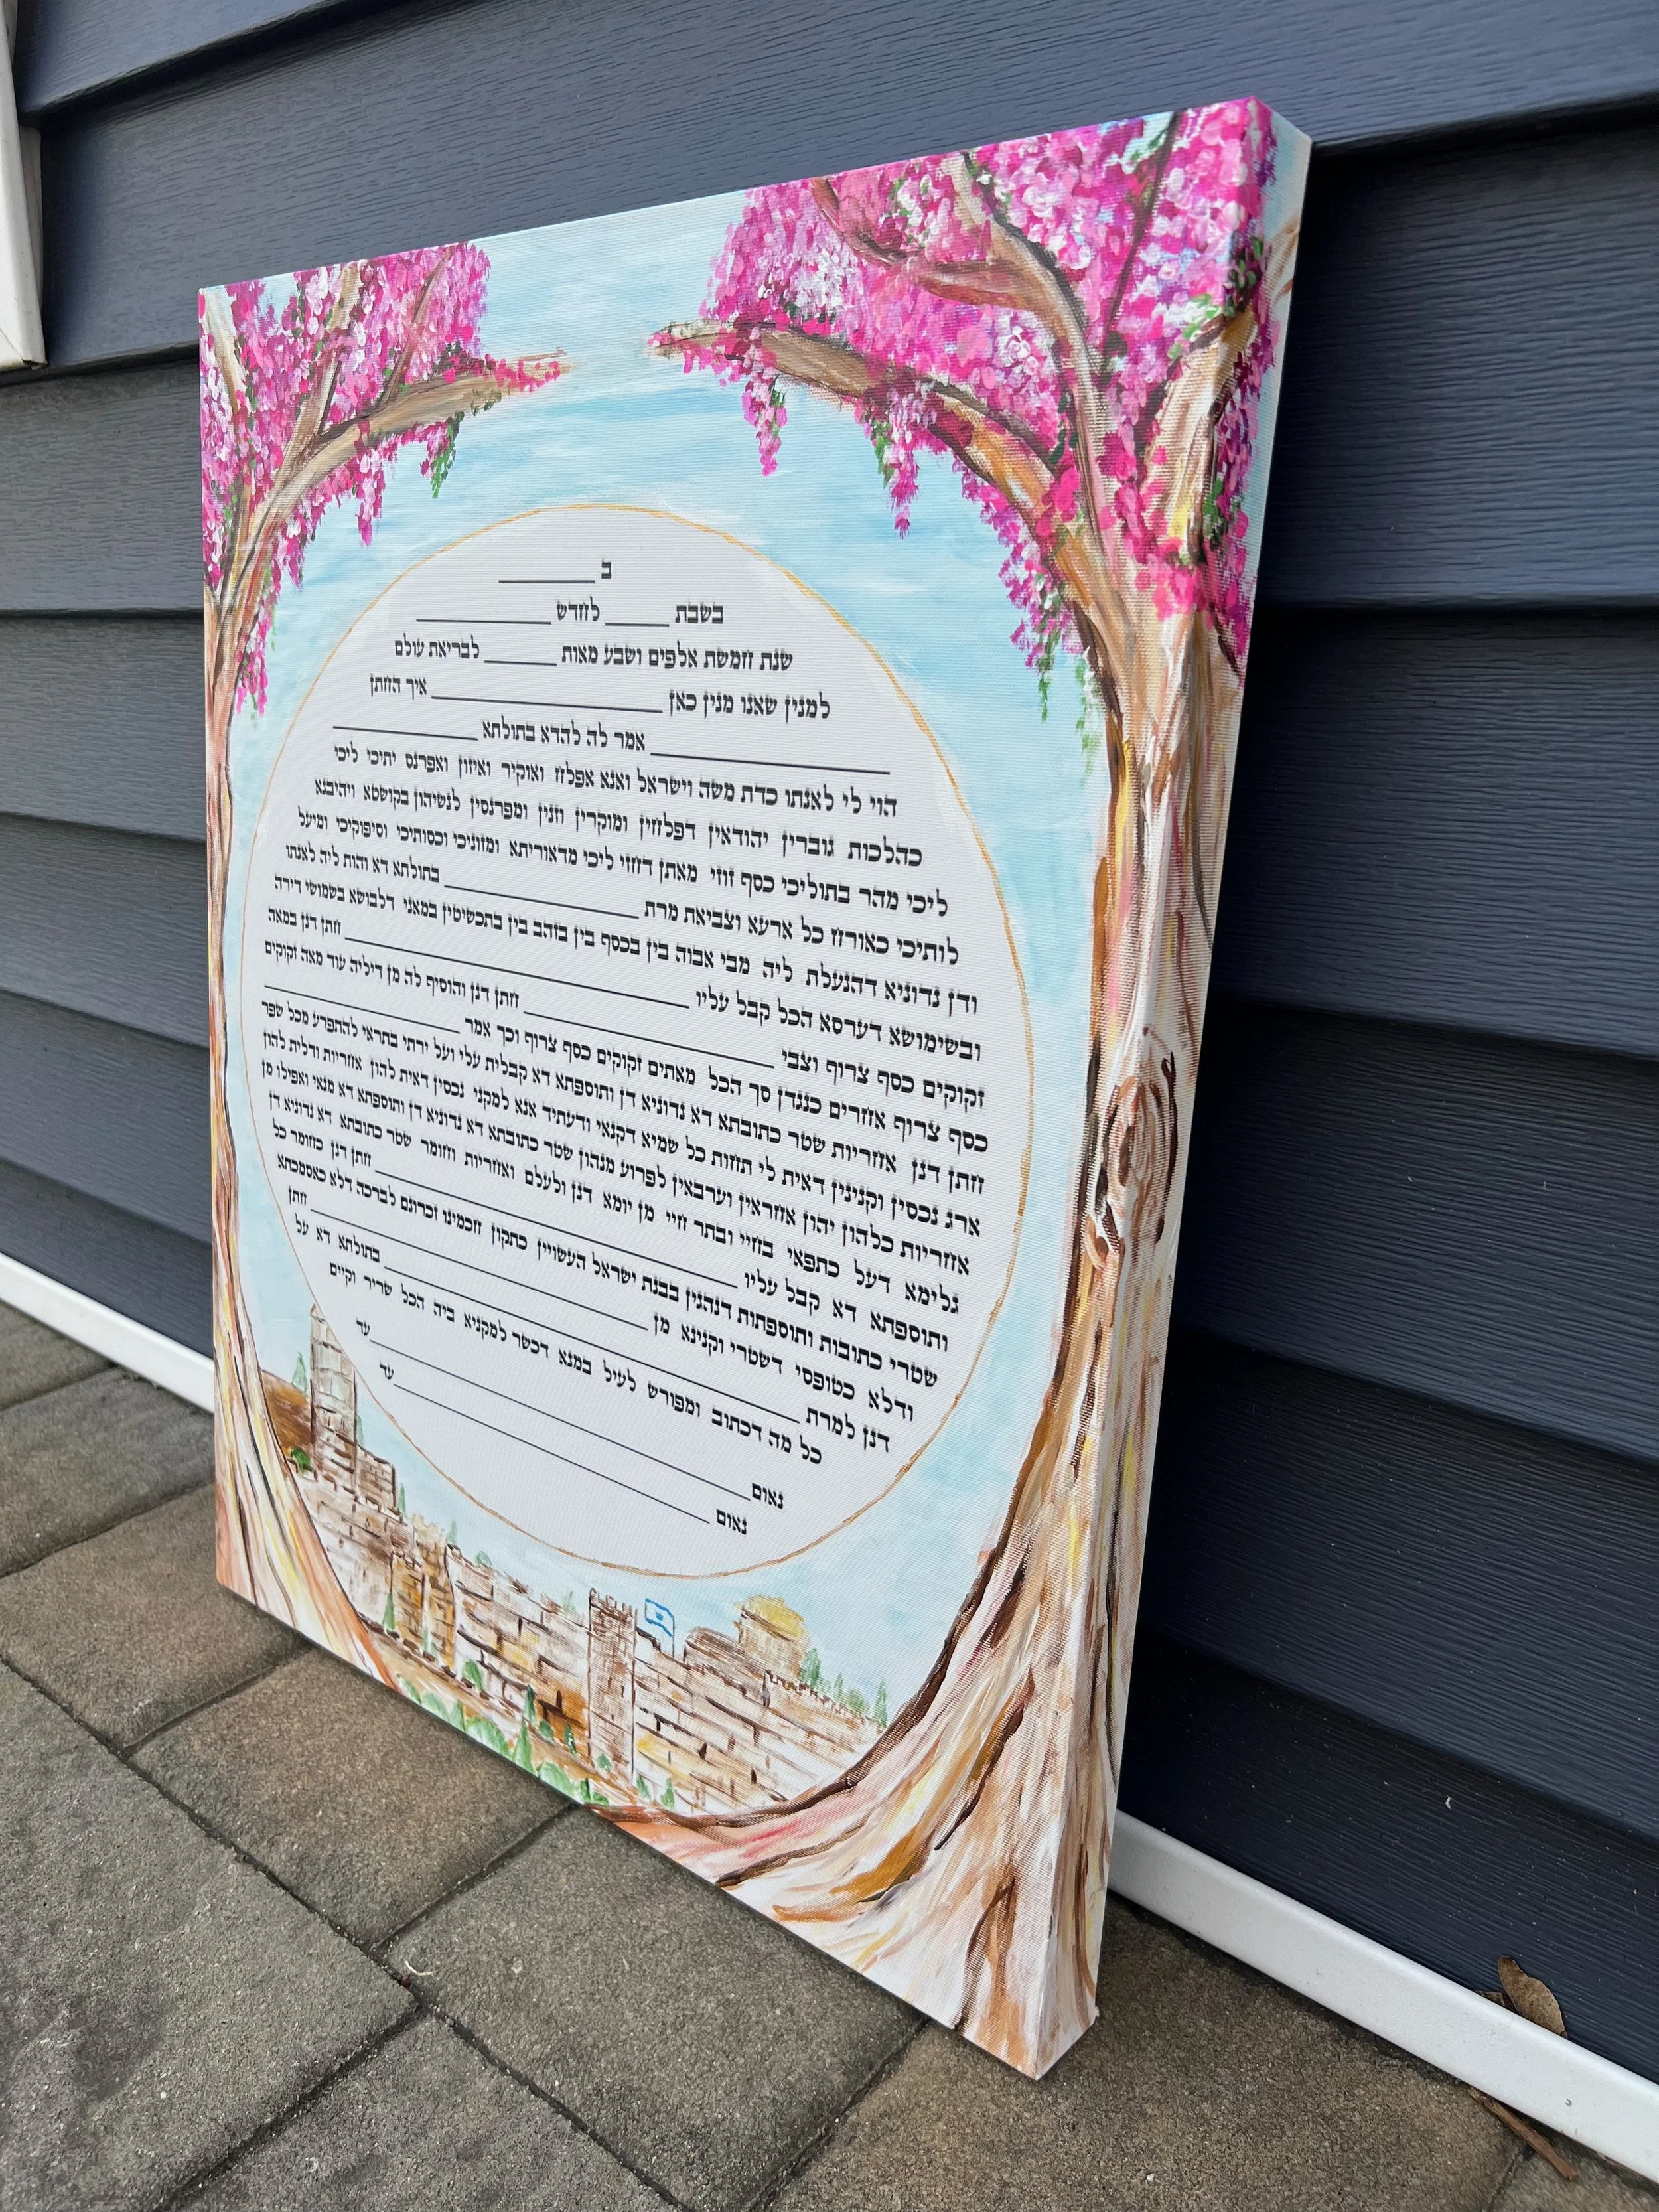 ב _______
בשבת _____ לחדש __________
שנת חמשת אלפים ושבע מאות _____ לבריאת עולם
למנין שאנו מנין כאן _______________ איך החתן
_______________ אמר לה להדא בתולתא __________
הוי לי לאנתו כדת משה וישראל ואנא אפלח ואוקיר ואיזון ואפרנס יתיכי ליכי
כהלכות גוברין יהודאין דפלחין ומוקרין וזנין ומפרנסין לנשיהון בקושטא ויהיבנא
ליכי מהר בתוליכי כסף זוזי מאתן דחזי ליכי מדאוריתא ומזוניכי וכסותיכי וסיפוקיכי ומיעל
לותיכי כאורח כל ארעא וצביאת מרת _______________ בתולתא דא והות ליה לאנתו
ודן נדוניא דהנעלת ליה מבי אבוה בין בכסף בין בזהב בין בתכשיטין במאני דלבושא בשמושי דירה
ובשימושא דערסא הכל קבל עליו _______________ חתן דנן במאה
זקוקים כסף צרוף וצבי _______________ חתן דנן והוסיף לה מן דיליה עוד מאה זקוקים
כסף צרוף אחרים כנגדן סך הכל מאתים זקוקים כסף צרוף וכך אמר _______________
חתן דנן אחריות שטר כתובתא דא נדוניא דן ותוספתא דא קבלית עלי ועל ירתי בתראי להתפרע מכל שפר
ארג נכסין וקנינין דאית לי תחות כל שמיא דקנאי ודעתיד אנא למקני נכסין דאית להון אחריות ודלית להון
אחריות כלהון יהון אחראין וערבאין לפרוע מנהון שטר כתובתא דא נדוניא דן ותוספתא דא מנאי ואפילו מן
גלימא דעל כתפאי בחיי ובתר חיי מן יומא דנן ולעלם ואחריות וחומר שטר כתובתא דא נדוניא דן
ותוספתא דא קבל עליו _______________ חתן דנן כחומר כל
שטרי כתובות ותוספתות דנהגין בבנת ישראל העשויין כתקון חכמינו זכרונם לברכה דלא כאסמכתא
ודלא כטופסי דשטרי וקנינא מן _______________ חתן
דנן למרת _______________ בתולתא דא על
כל מה דכתוב ומפורש לעיל במנא דכשר למקניא ביה הכל שריר וקיים
נאום _______________ עד
נאום _______________ עד